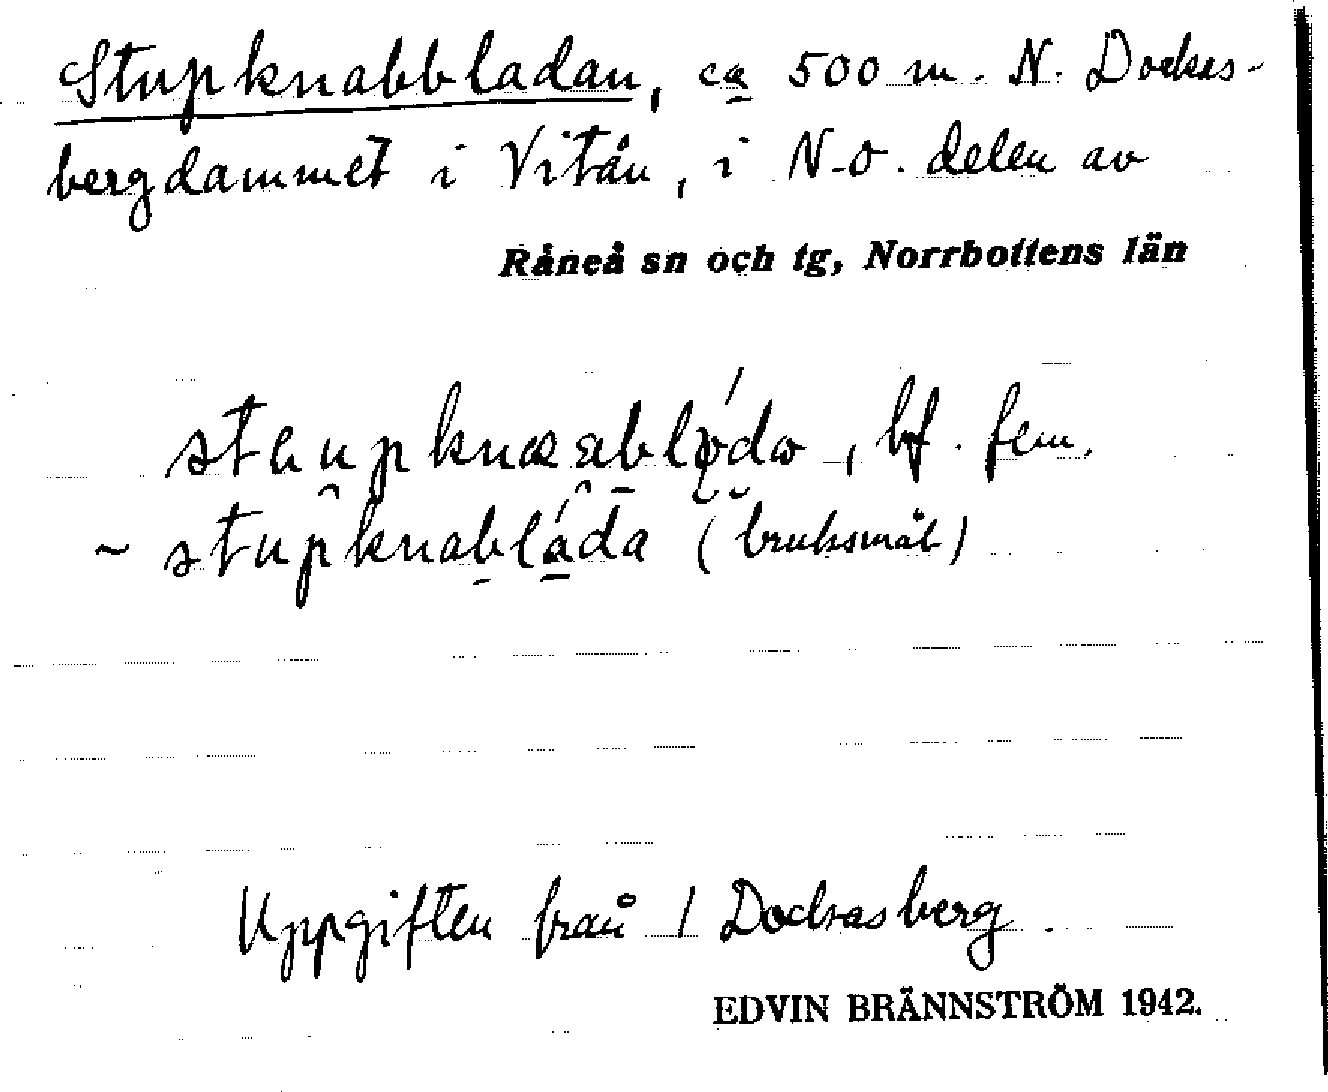 Stupknabbladan, ca 500 m. N. Dockas-
bergdammet i Vitån, i N.O. delen av
Råneå sn och tg, Norrbottens län
bf. fem.
~ stupknabláda (bruksmål)
Uppgiften från 1 Dockasberg.
EDVIN BRÄNNSTRÖM 1942.